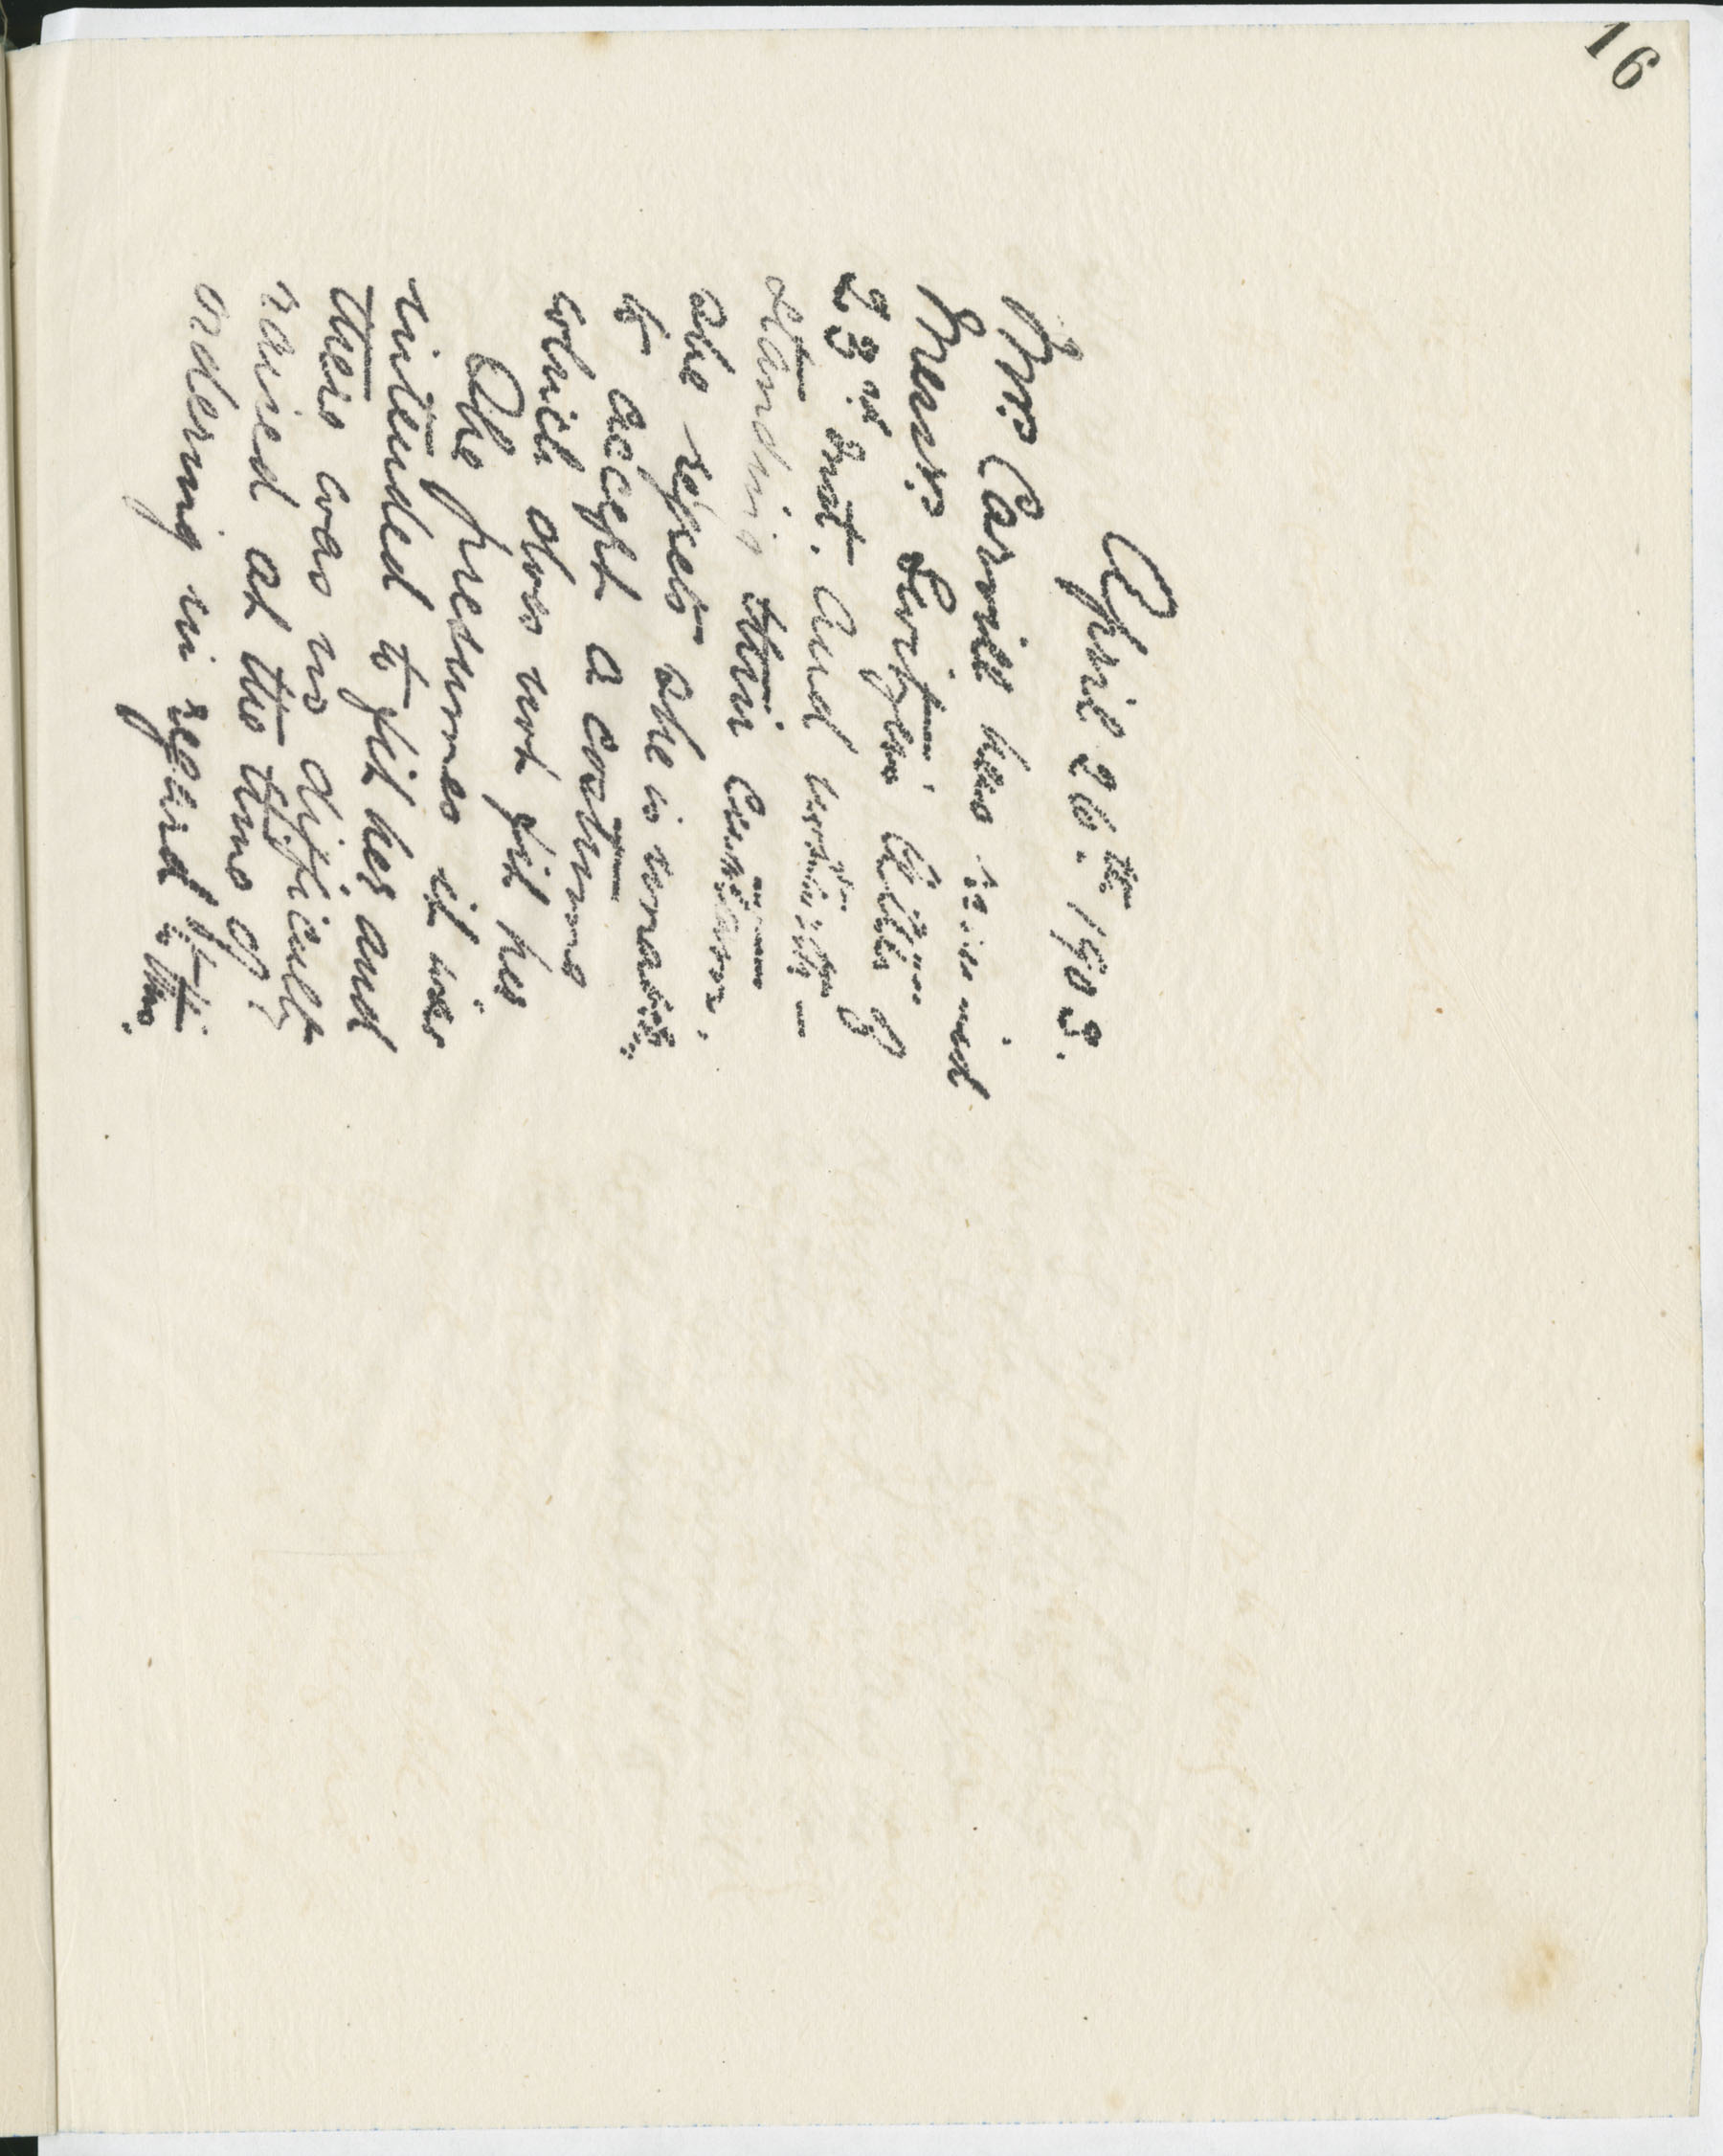 16
April 26th 1903.
Mrs Carvill has received
Messrs letter of
23rd Inst. and notwith-
standing their
she regrets she is unable
to accept a costume
which does not fit her
She presumes it was
intended to fit her and
there was no difficulty
raised at the time of
ordering in regard to this.